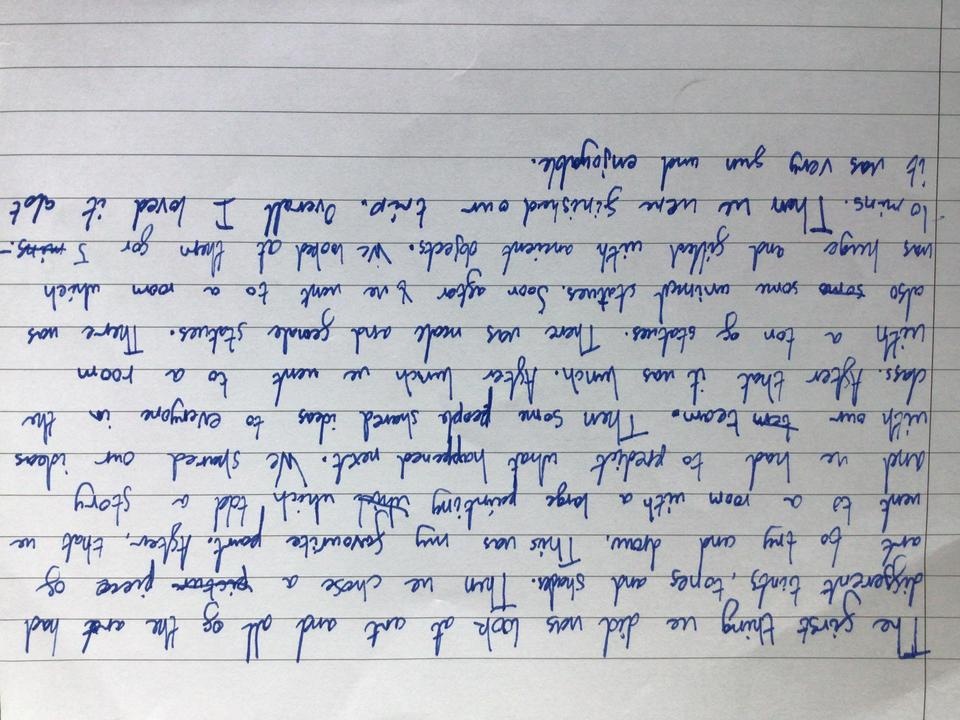 The first thing we did was look at art and all of the art had
different tints, tones, and shades. Then we chose a piction piece of
art to try and draw. This was my favourite part. After, that we
went to a room with a large painting which told a story
and we had to predict what happened next. We shared our ideas
with our tem team. Then some people shared ideas to everyone in the
class. After that it was lunch. After lunch we went to a room
with a ton of statues. There was male and female statues. There was
also some some animal statues. Soon after we went to a room which
was huge and filled with ancient objects. We looked at them for 5 mins.
10 mins. Then we were finished our trip. Overall I loved it alot
it was very fun and enjoyable.